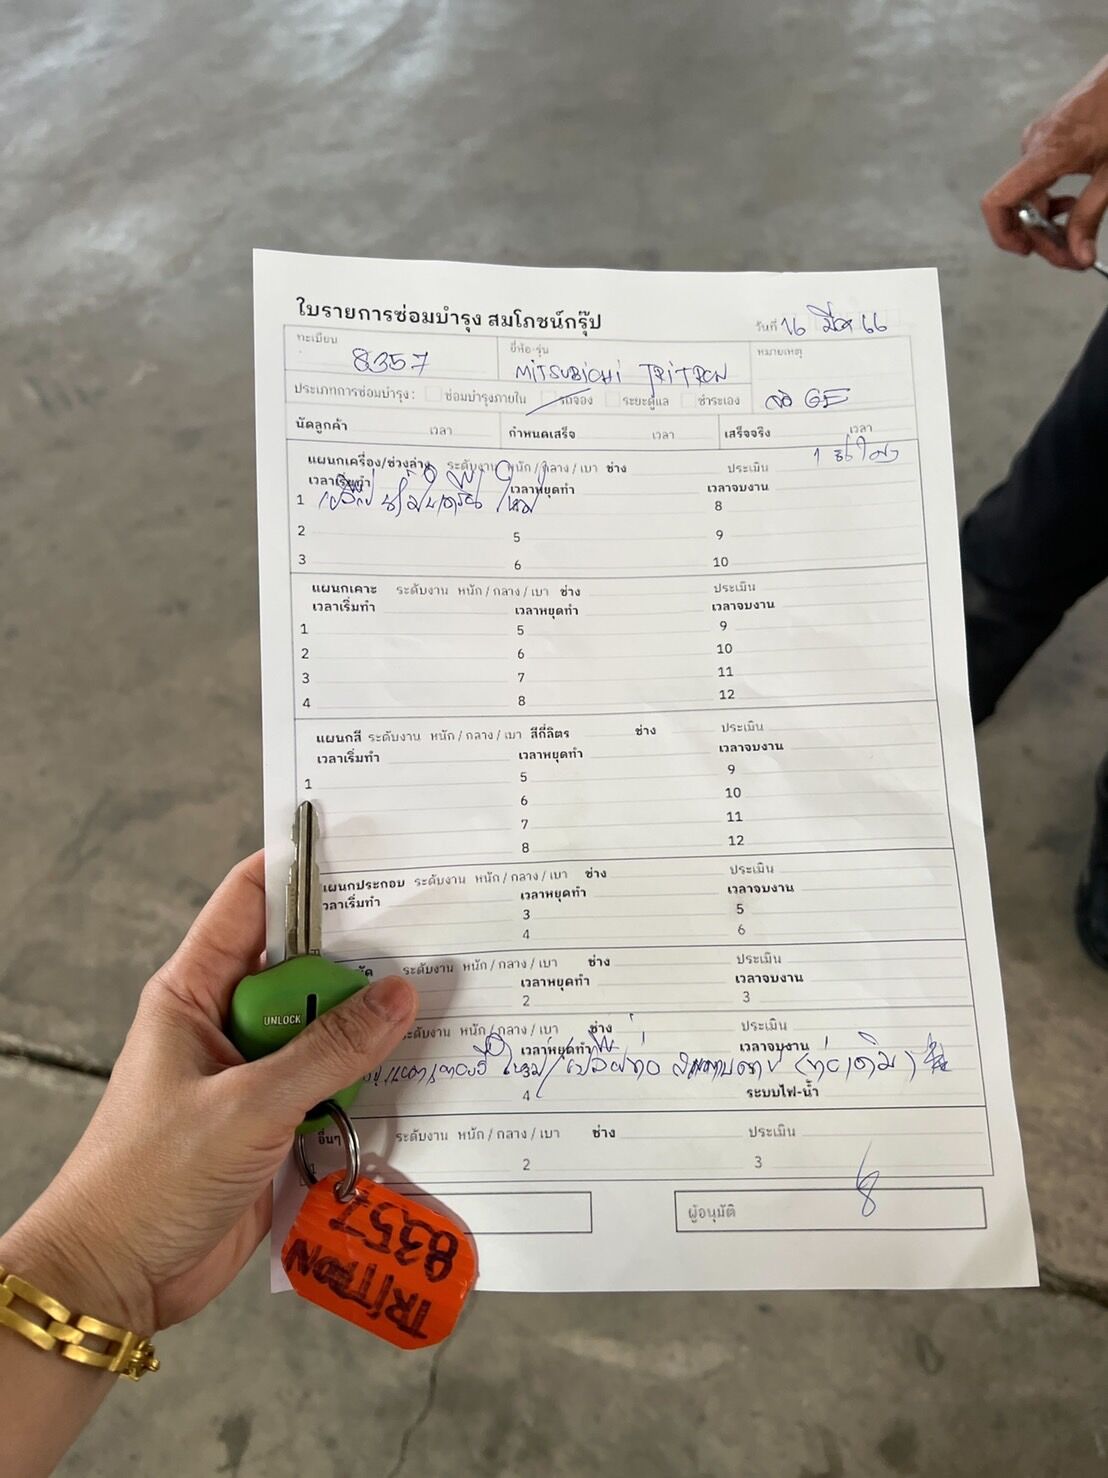 ใบรายการซ่อมบำรุง สมโภชน์กรุ๊ป
วันที่ 16 มีค 66
ทะเบียน 8357
ยี่ห้อ-รุ่น MITSUBICHI TRITRON
หมายเหตุ
ประเภทการซ่อมบำรุง: ซ่อมบำรุงภายใน รถจอง ระยะดูแล ชำระเอง
นัดลูกค้า เวลา กำหนดเสร็จ เวลา เสร็จจริง เวลา
แผนกเครื่อง/ช่วงล่าง ระดับงาน หนัก / กลาง / เบา ช่าง ประเมิน 1
เวลาเริ่มทำ เวลาหยุดทำ เวลาจบงาน
1 ใหม่ 8
2 5 9
3 6 10
แผนกเคาะ ระดับงาน หนัก / กลาง / เบา ช่าง ประเมิน
เวลาเริ่มทำ เวลาหยุดทำ เวลาจบงาน
1 5 9
2 6 10
3 7 11
4 8 12
แผนกสี ระดับงาน หนัก / กลาง / เบา สีกี่ลิตร ช่าง ประเมิน
เวลาเริ่มทำ เวลาหยุดทำ เวลาจบงาน
1 5 9
6 10
7 11
8 12
แผนกประกอบ ระดับงาน หนัก / กลาง / เบา ช่าง ประเมิน
เวลาเริ่มทำ เวลาหยุดทำ เวลาจบงาน
3 5
4 6
ระดับงาน หนัก / กลาง / เบา ช่าง ประเมิน
เวลาหยุดทำ เวลาจบงาน
2 3
ระดับงาน หนัก / กลาง / เบา ช่าง ประเมิน
เวลาหยุดทำ เวลาจบงาน
ใหม่ (ท่อเดิม)
4 ระบบไฟ-น้ำ
อื่นๆ ระดับงาน หนัก / กลาง / เบา ช่าง ประเมิน
1 2 3
ผู้อนุมัติ
UNLOCK
TRITRON
8357